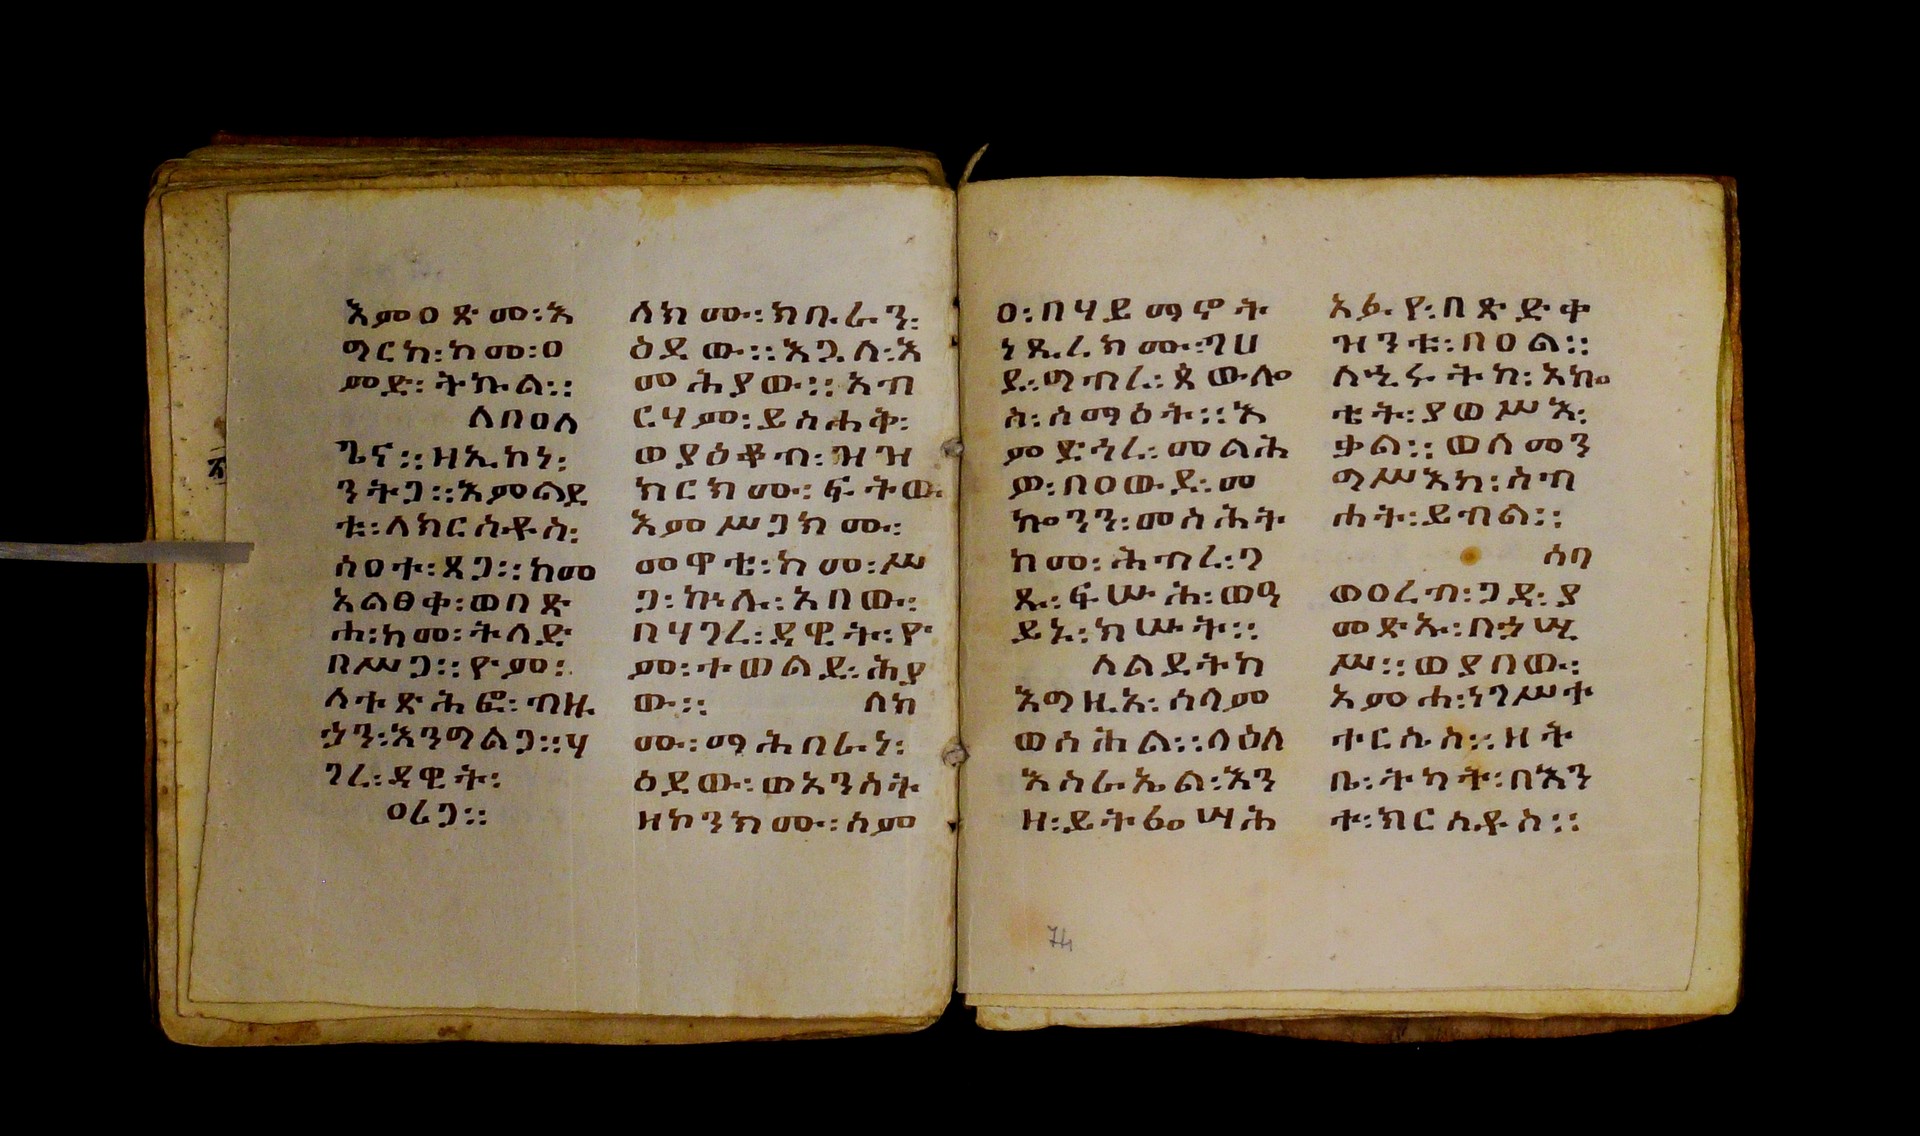 እምዐጽሙ፡አ
ግርከ፡ከመ፡ዐ
መድ፡ትኩል፡፡
ለበዐለ
ጌና፡፡ዘኢኮነ፡
ንትጋ፡፡እምልደ
ቱ፡ለክርስቶስ፡
ሰዐተ፡ጸጋ፡፡ከመ
አልፀቀ፡ወበጽ
ሐ፡ከመ፡ትለድ
በሥጋ፡፡ዮም፡
ለተጽሕፎ፡ብዙ
ኃን፡እንግልጋ፡፡ሃ
ገረ፡ዳዊት፡
ዐሬጋ፡፡
ለክሙ፡ክቡራን፡
ዕደው፡፡እጓለ፡እ
መሕያው፡፡አብ
ርሃም፡ይስሐቅ፡
ወያዕቆብ፡ዝዝ
ክርክሙ፡ፍትው
እምሥጋክሙ፡
መዋቲ፡ከመ፡ሥ
ጋ፡ኵሉ፡አበው፡
በሃገረ፡ዳዊት፡ዮ
ም፡ተወልደ፡ሕያ
ው፡፡ ለክ
ሙ፡ማሕበራነ፡
ዕደው፡ወአንስት
ዘኮንክሙ፡ስም
ዐ፡በሃይማኖት
ነጺረክሙ፡ገሀ
ደ፡ግብረ፡ጳውሎ
ስ፡ሰማዕት፡፡እ
ምድኅረ፡መልሕ
ም፡በዐውደ፡መ
ኰንን፡መስሕት
ከመ፡ሕብረ፡ገ
ጹ፡ፍሡሕ፡ወዓ
ይኑ፡ክሡት፡፡
ለልደትከ
እግዚአ፡ሰላም
ወሰሕል፡፡ለዕለ
እስራኤል፡እን
ዘ፡ይትፌሣሕ
አፉየ፡በጽድቀ
ዝንቱ፡በዐል፡፡
ለኂሩትከ፡አኰ
ቴት፡ያወሥእ፡
ቃል፡፡ወሰመን
ግሥእከ፡ስብ
ሐት፡ይብል፡፡
ሰባ
ወዐረብ፡ጋዳ፡ያ
መጽኡ፡በኃሢ
ሥ፡፡ወያበው፡
አምሐ፡ነገሥተ
ተርሴስ፡፡ዘት
ቤ፡ትካት፡በእን
ተ፡ክርስቶስ፡፡
74